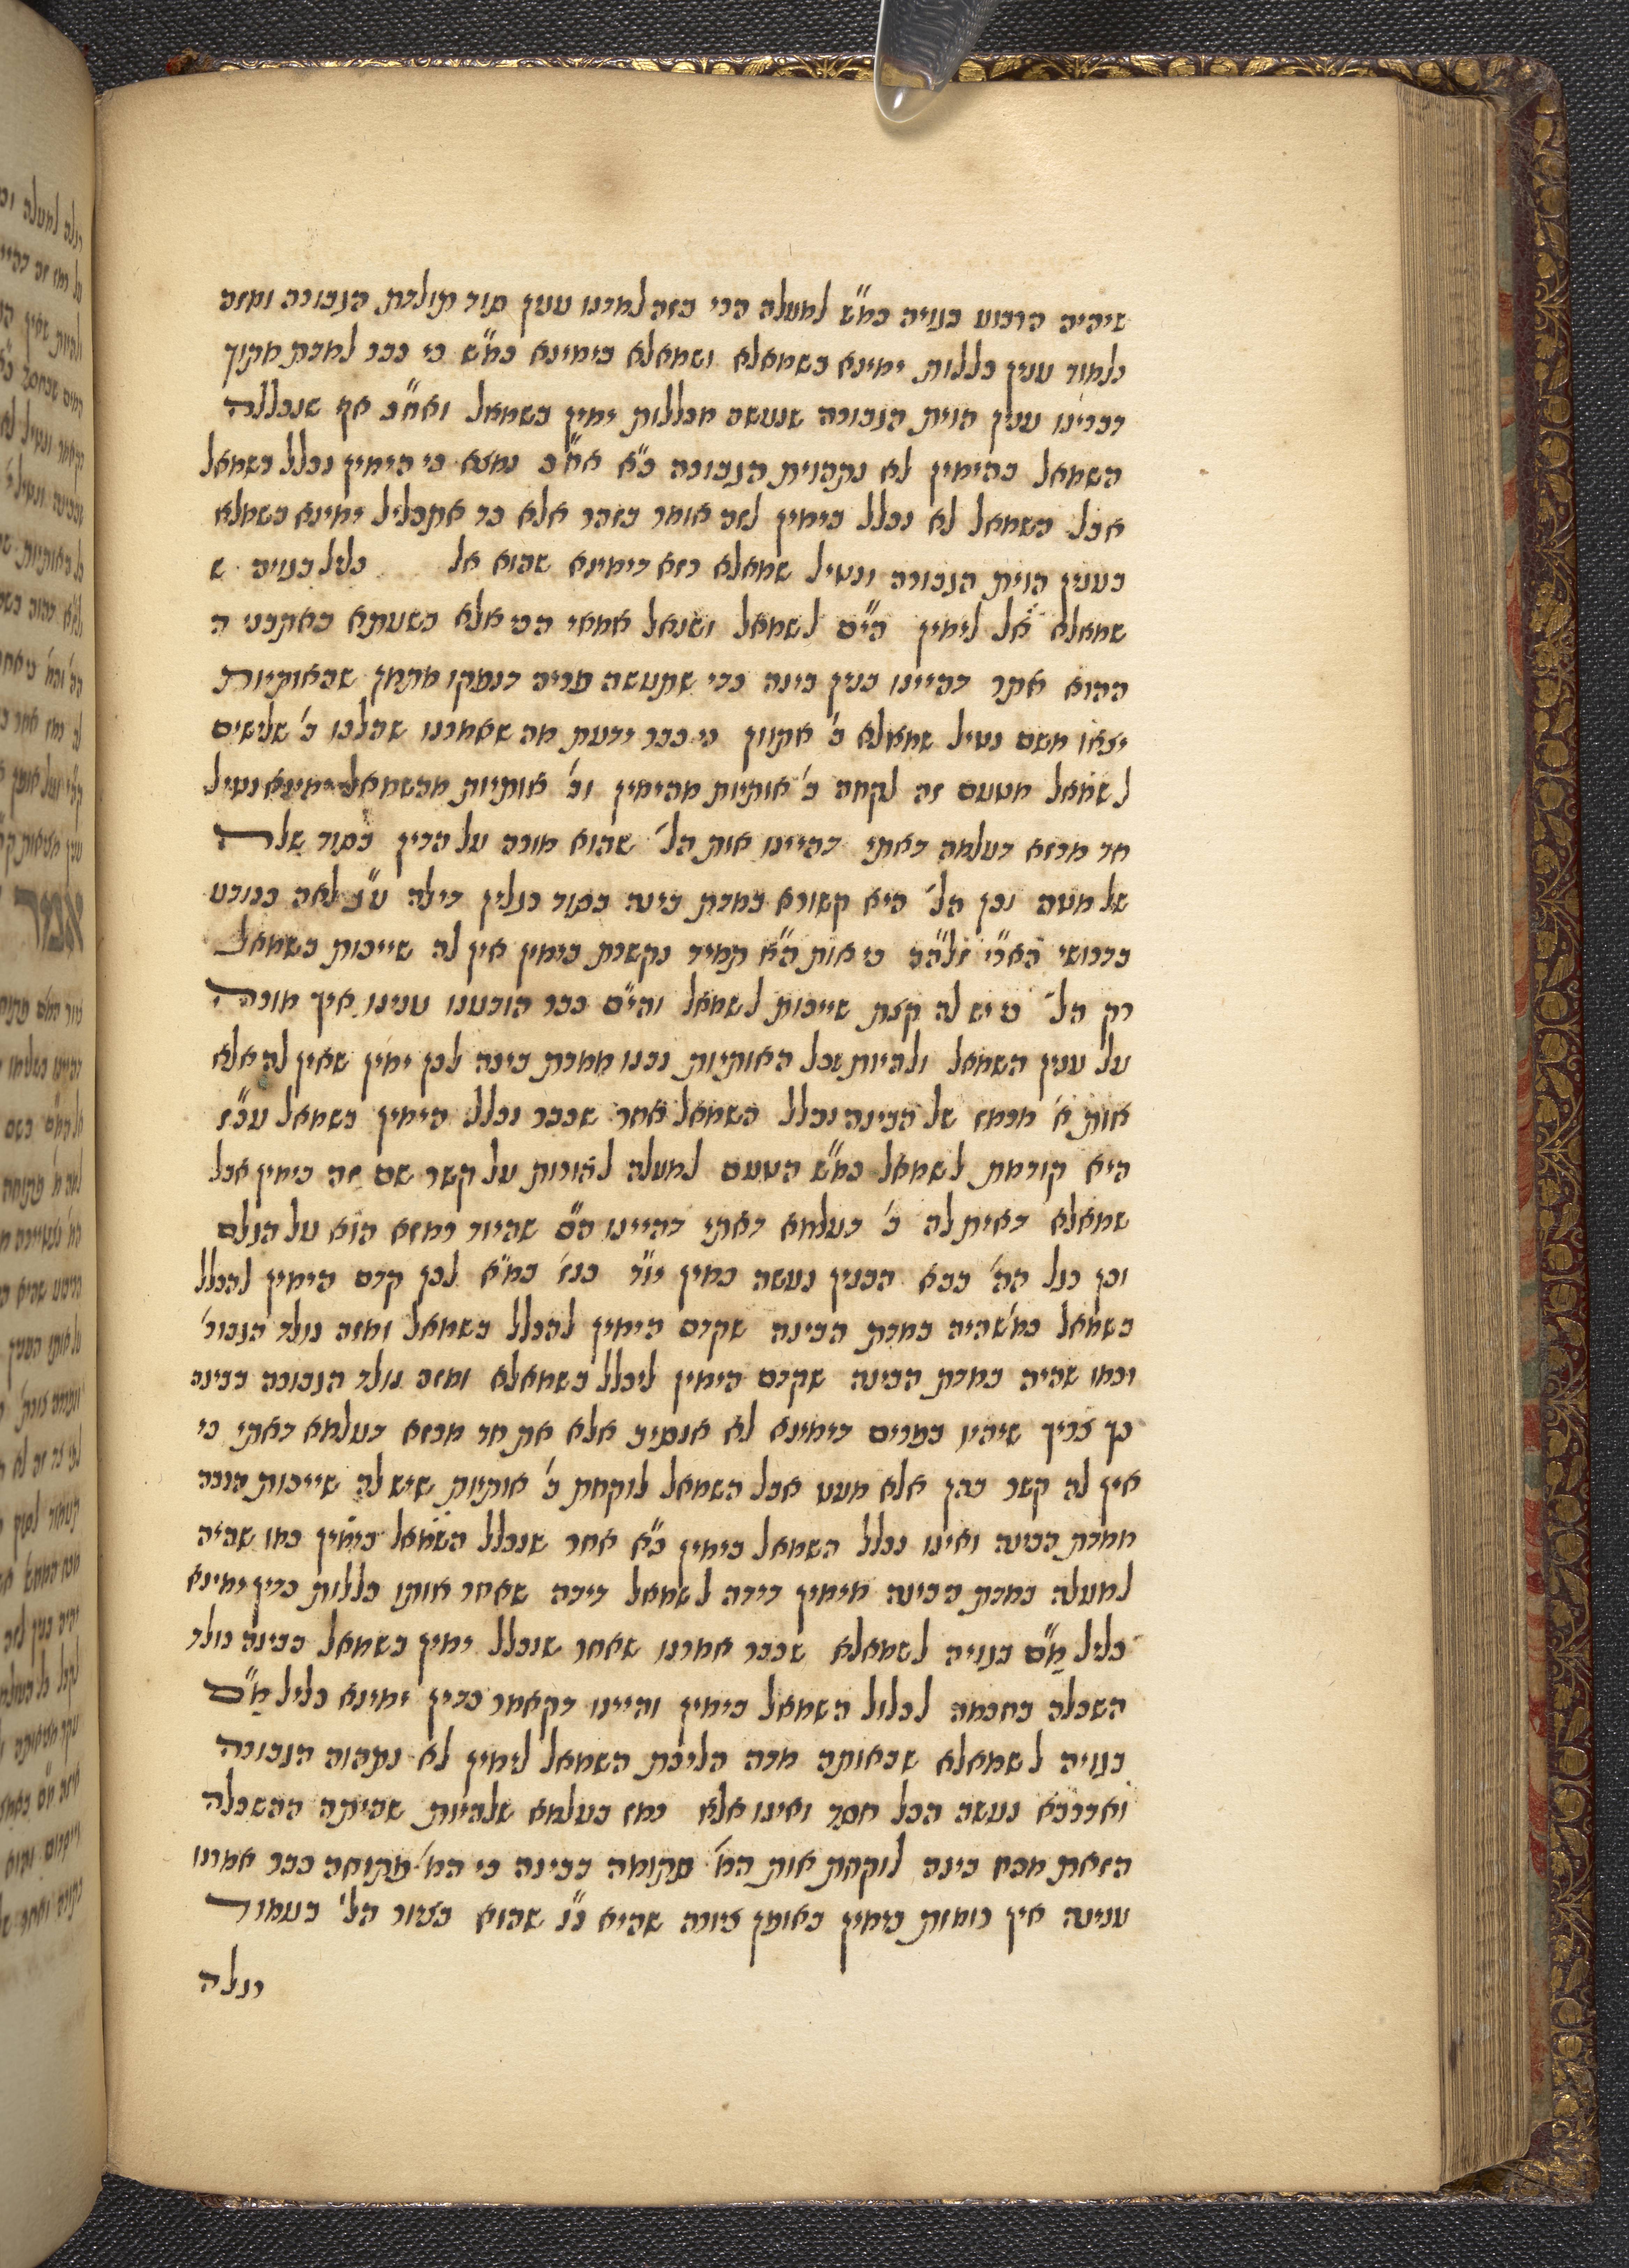 שיהיה הרבוע בנויה כמ"ש למעלה הרי בזה למדנו ענין סוד תולדת הגבורה ומזה
נלמוד ענין כללות ימינא בשמאלא ושמאלא בימינא כמ"ש כי כבר למדת מתוך
דברינו ענין הוית הגבורה שנעשה מכללות ימין בשמאל ואח"כ אף שנכללה
השמאל בהימין לא נתהוית הגבורה כ"א אח"כ נמצא כי הימין נכלל בשמאל
אבל השמאל לא נכלל בימין לזה אומר בזהר אלא כד אתכליל ימינא בשמלא
כענין הוית הגבורה ונטיל שמאלא רזא דימינא שהוא אל כליל בנוים ש
שמאלא אל לימין הי"ם לשמאל ושואל אמאי הכי אלא בשעתא דאתבני ה
ההוא אתר דהיינו בנין בינה כדי שתעשה פריה דנפקו מתמן שהאותיות
יצאו משם נטיל שמאלא ב' אתוון כי כבר ידעת מה שאמרנו שהלכו ב' שלישים
לשמאל מטעם זה לקחה ב' אותיות מהימין וב' אותיות מהשמאל ימינא נטיל
חד מרזא דעלמה דאתי דהיינו אות הל' שהוא מורה על הדין בסוד שלה
של מטה וכן הל' היא קשורא במדת בינה בסוד רגלין דילה ע"ב לאה כנודע
בדרושי האר"י זלה"ה כי אות ה"א תמיד נקשרת בימין אין לה שייכות בשמאל
רק הל' כי יש לה קצת שייכות לשמאל והי"ם כבר הודענו ענינו איך מורה
על ענין השמאל ולהיות שכל האותיות נבנו ממדת בינה לכן ימין שאין לה אלא
אות א' מרמז של הבינה נכלל השמאל אחר שכבר נכלל הימין בשמאל עכ"ז
היא קודמת לשמאל כמ"ש הטעם למעלה להורות על קשר שם זה בימין אבל
שמאלא דאית לה ב' בעלמא דאתי דהיינו הי"ם שהיוד רמזא הוא על הגלם
וכן כנל הה' בבא הבנין נעשה כמין יו"ד כנז' כמ"א לכן קדם הימין להכלל
בשמאל כמ'שהיה במדת הבינה שקדם הימין להכלל בשמאל ומזה נולד הגבור'
וכמו שהיה במדת הבינה שקדם הימין ליכלל בשמאלא ומזה נולד הגבורה בבינה
כך צריך שיהיו במדים דימינא לא אנסיב אלא את חד מרזא דעלמא דאתי כי
אין לה קשר בהן אלא מעט אבל השמאל לוקחת ב' אותיות שיש לה שייכות הרבה
ממדת הבינה ואינו נכלל השמאל בימין כ"א אחר שנכלל השמאל בימין כמו שהיה
למעלה במדת הבינה מימין דידה לשמאל דידה שאחר אותו כללות כדין ימינא
כליל מ"ם בנויה לשמאלא שכבר אמרנו שאחר שנכלל ימין בשמאל בבינה נולד
השכלה בחכמה לכלול השמאל בימין והיינו דקאמר כדין ימינא כליל מ"ם
בנויה לשמאלא שבאותה מדה הליכת השמאל לימין לא נתהוה הגבורה
ואדרבא נעשה הכל חסד ואינו אלא רמז בעלמא שלהיות שהיתה ההשכלה
הזאת מכח בינה לוקחת אות המ' סתומה בבינה כי המ' פתוחה כבר אמרנו
ענינה אין רומזת בימין באומן צורה שהיא כ"ו שהוא בציור הל' בעמוד
רגלה